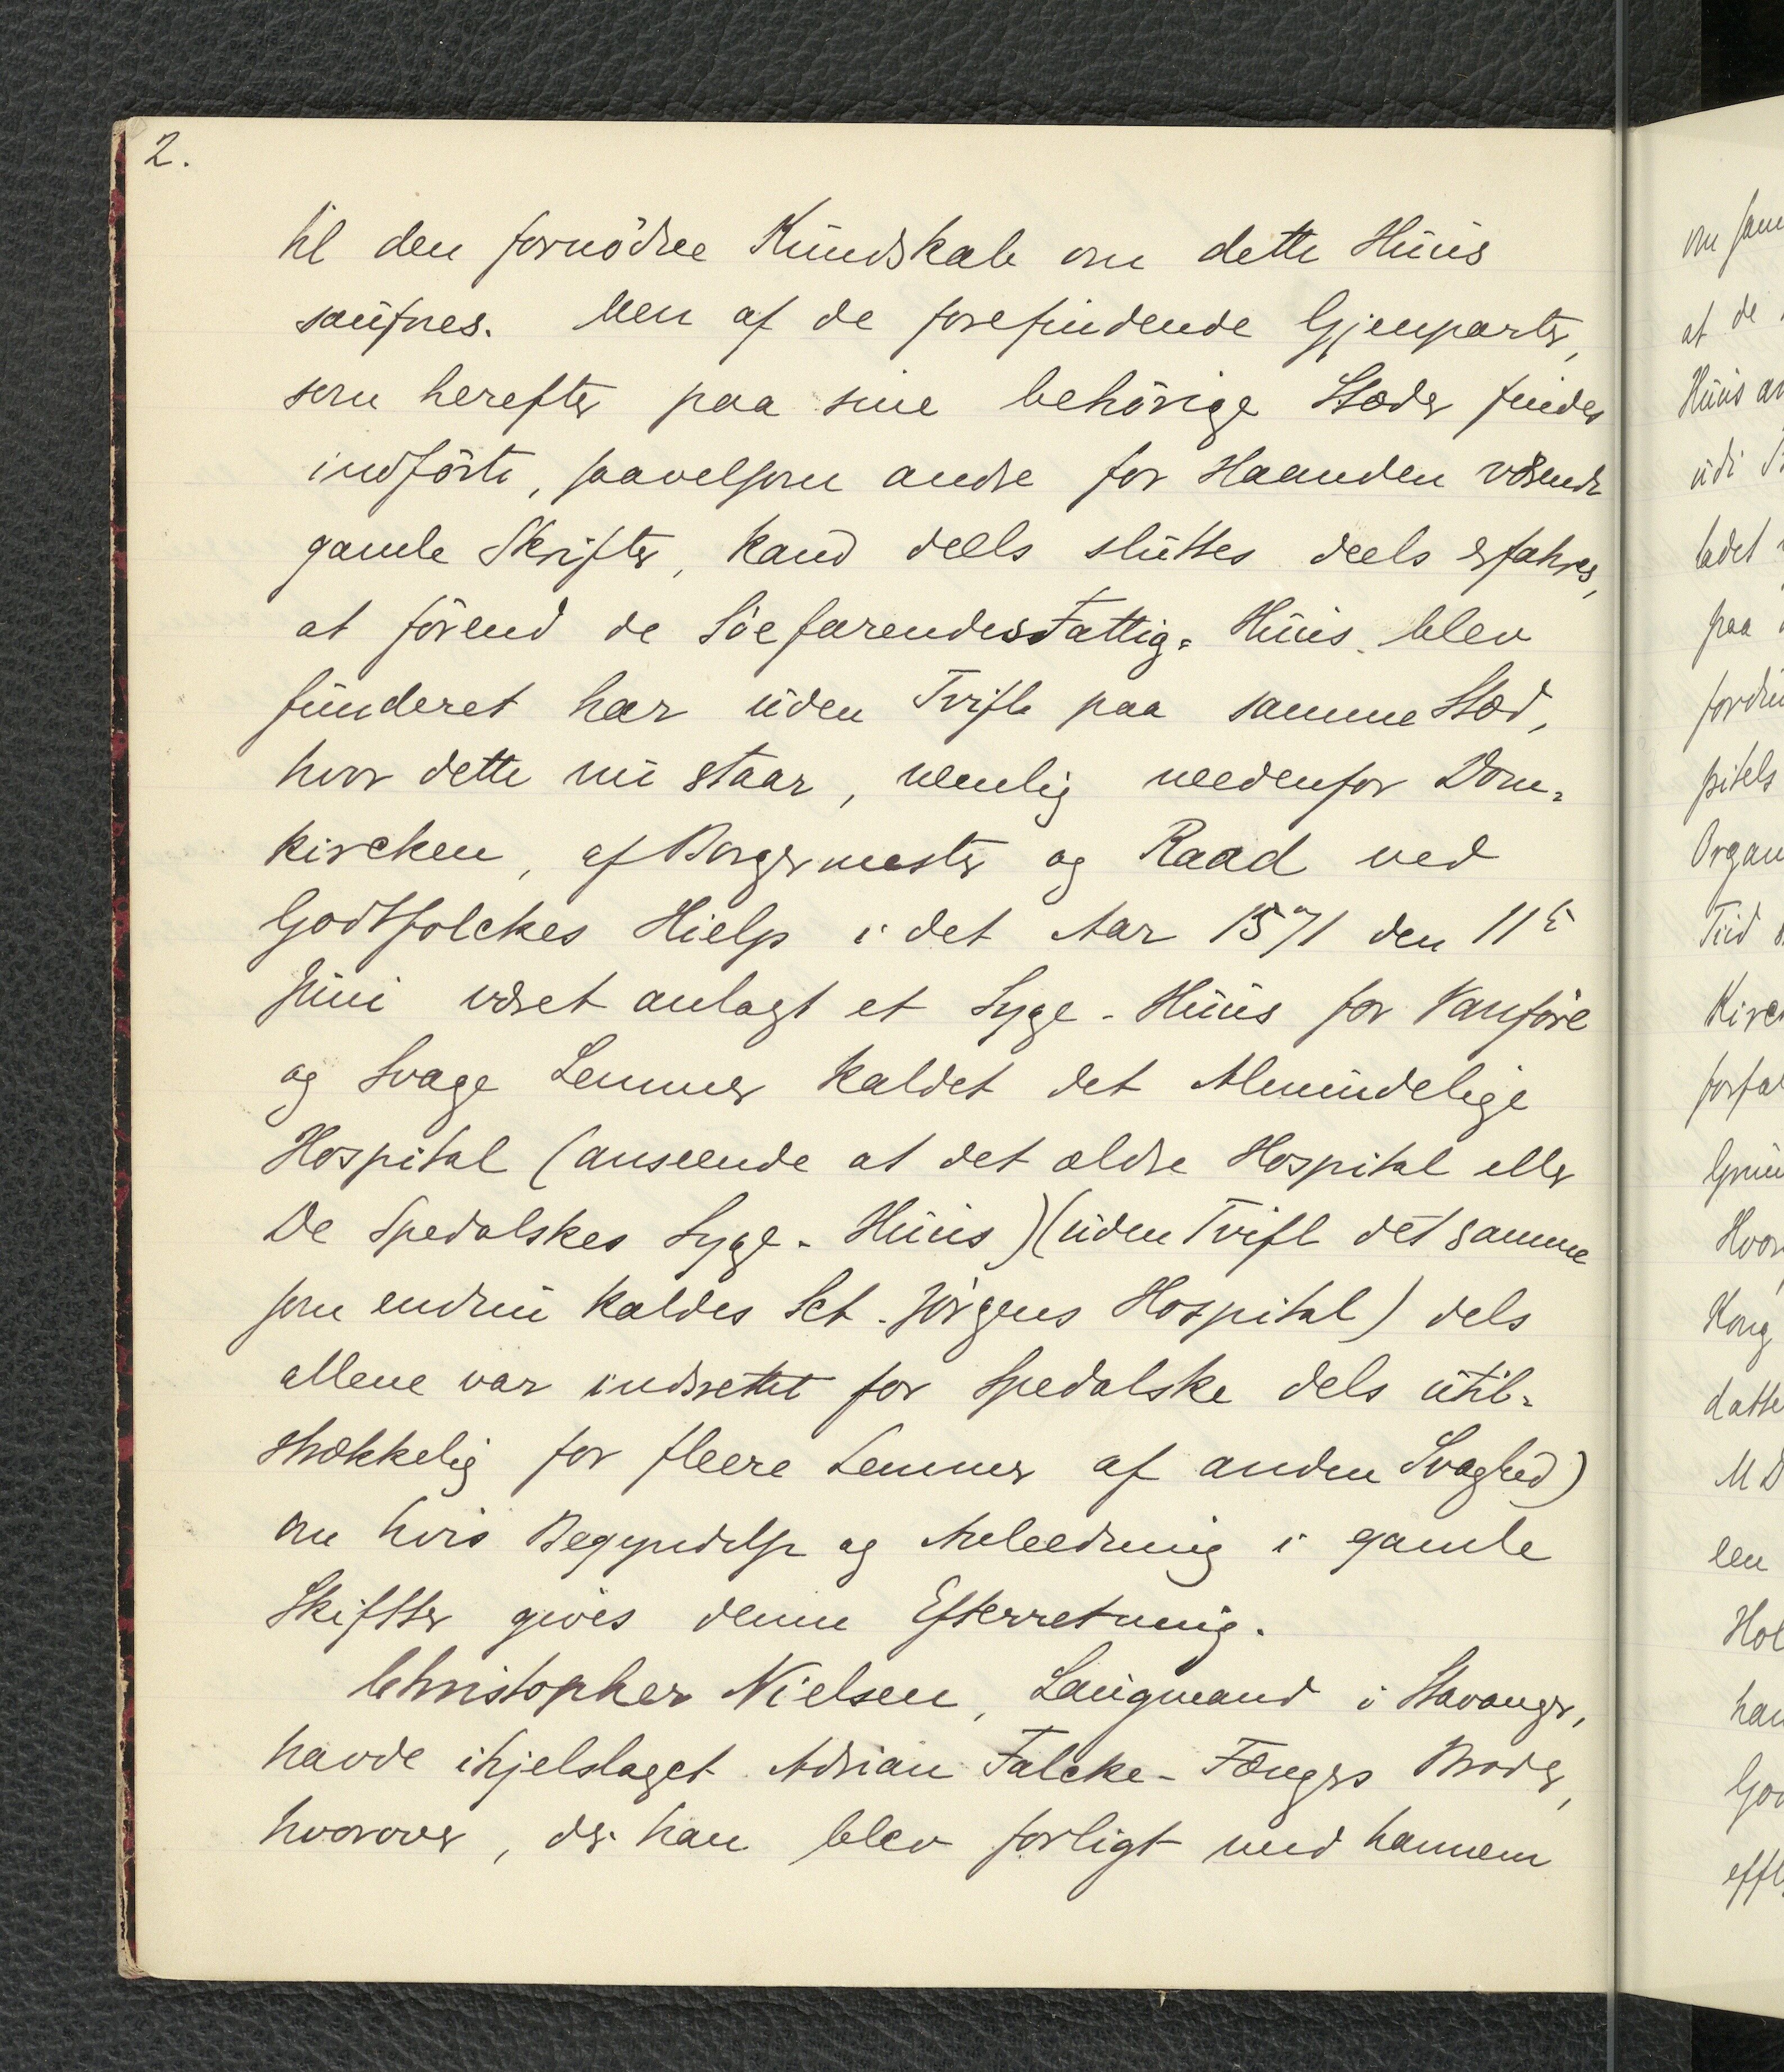 2.
til den fornödne Kundskab om dette Huus
saufnes. Men af de forefindende Gjenparter,
som herefter paa sine behörige Stæder findes
indförte, saavelsom andre for Haanden værende
gamle Skrifter, kand deels sluttes deels erfahres,
at förend de Söefarendes Fattig-Huus blev
funderet har uden Tvifl paa samme Stæd,
hvor dette nu staar, nemlig needenfor Dom-
kircken, af Borgermester og Raad ved
Godtfolckes Hielp i det Aar 1571 den 11te
Juni været anlagt et Syge-Huus for Vanföre
og Svage Lemmer kaldet det Almindelige
Hospital (anseende at det ældre Hospital eller
De Spedalskes Syge-Huus) (uden Tvifl det samme
som endnu kaldes Sct. Jörgens Hospital) dels
allene var indrettet for Spedalske dels util-
strækkelig for fleere Lemmer af anden Svaghed)
om hvis Begyndelse og Anleedning i gamle
Skiffter gives denne Efterretning.
Christopher Nielsen, Laugmand i Stavanger,
havde ihjelslaget Adrian Falcke-Fængers Broder,
hvorover, der han blev forligt med hannem
om sam
at de
Huus an
udi
ladet
paa
fordin
pitels
Organ
Tiid
Kirc
forfal
Grun
Hvor
Kong
datte
MD
een
Hol
han
God
efft